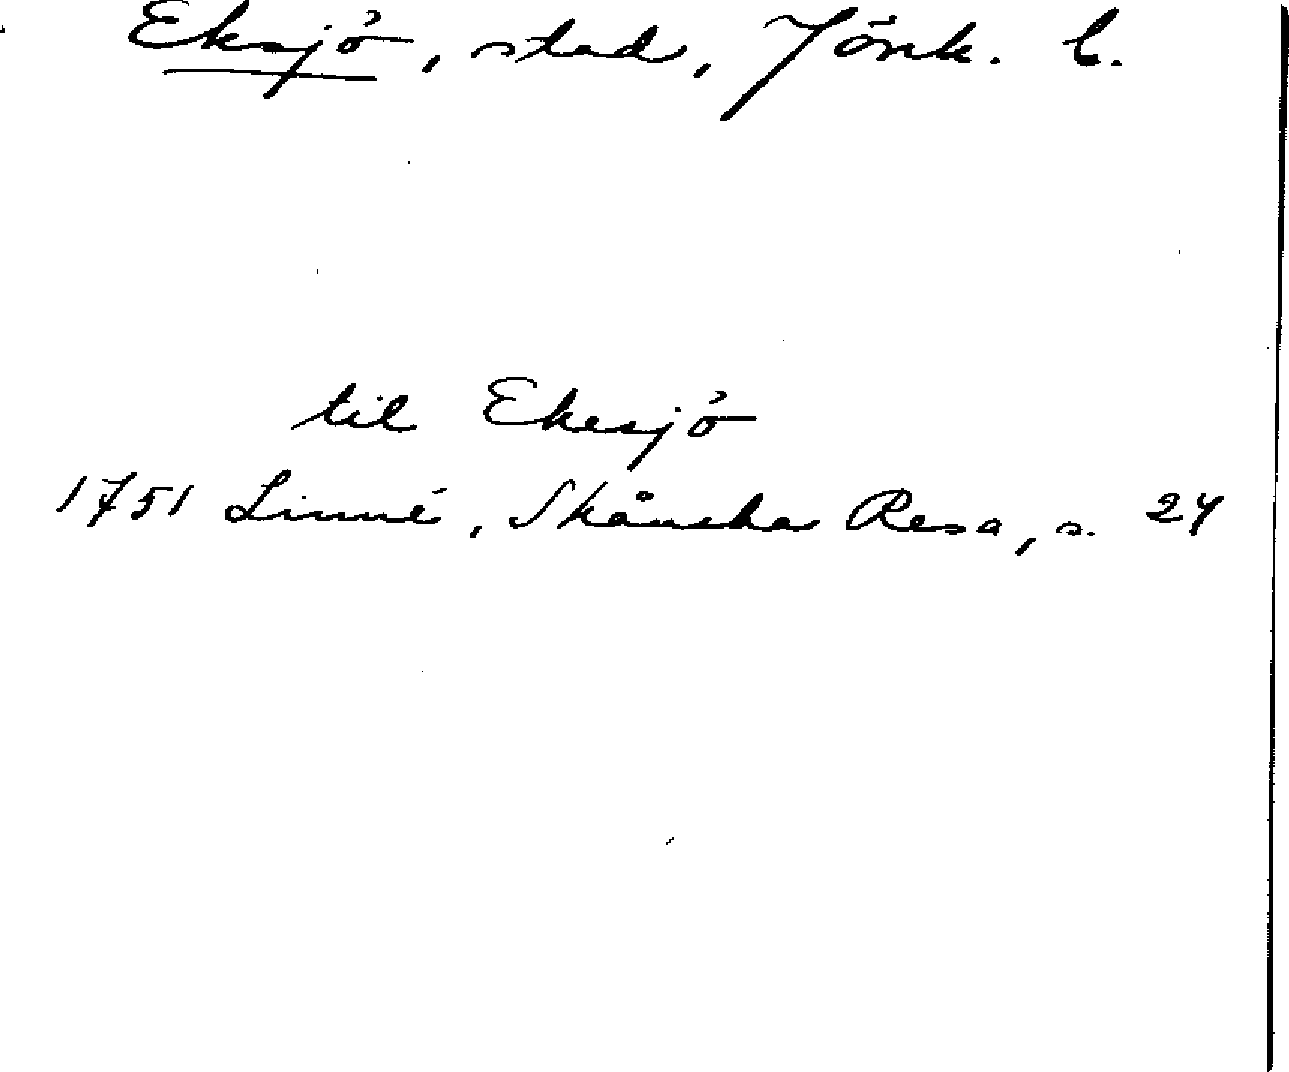 Eksjö, stad, Jönk. l.
til Ekesjö
1751 Linné, Skånska Resa, s. 24